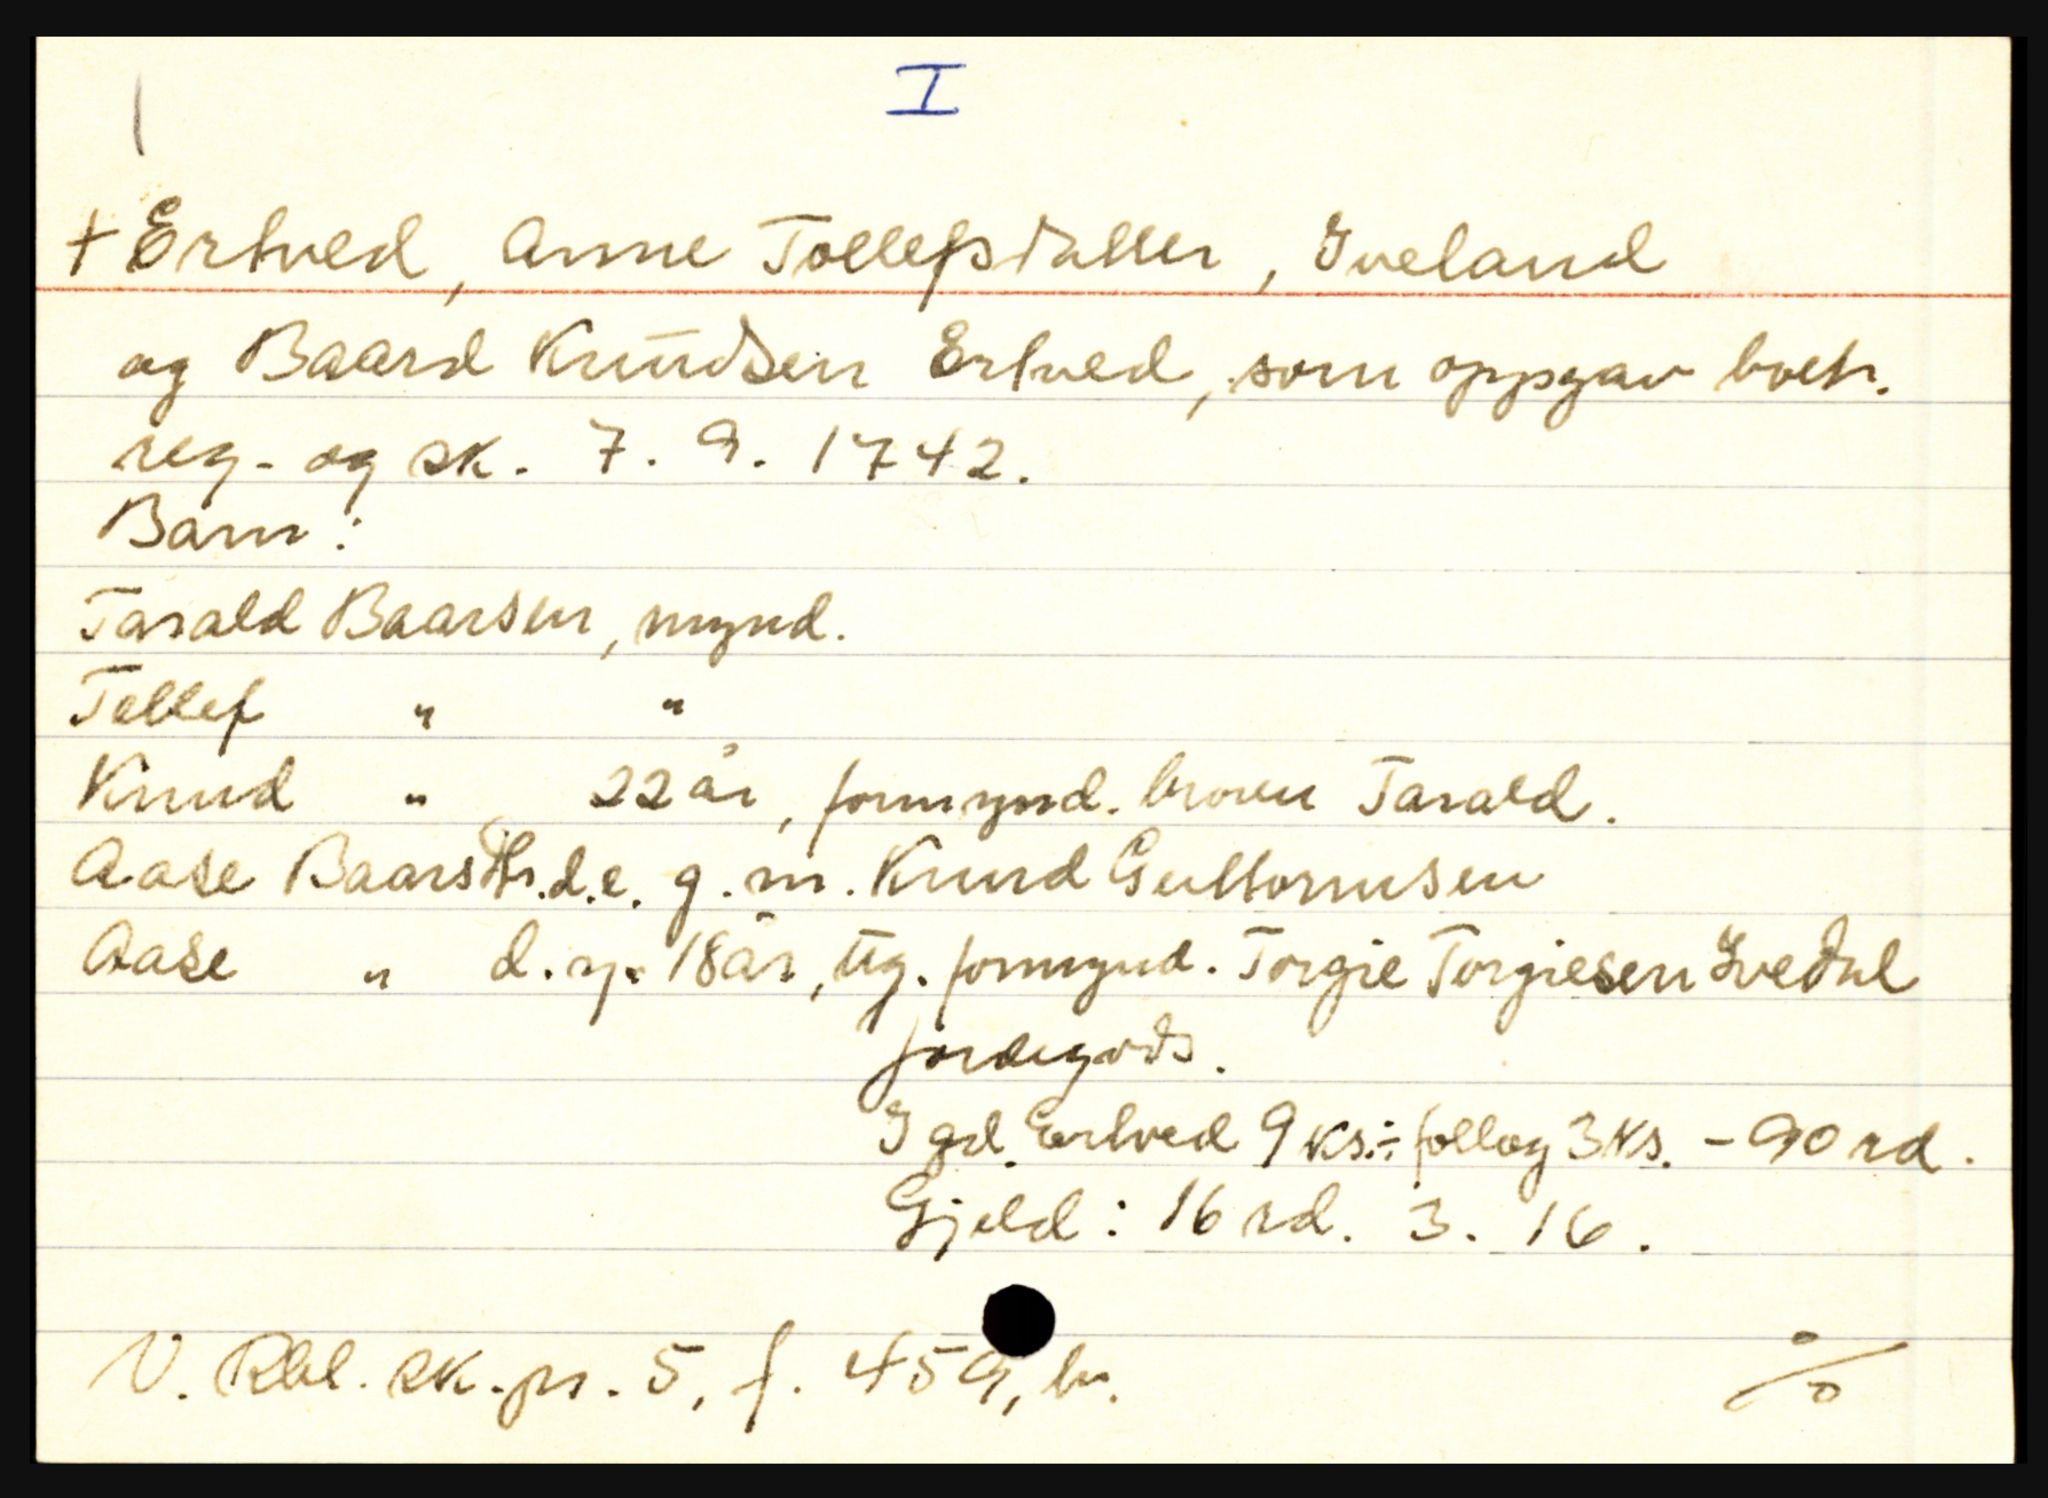 I
+ Ertved, Anne Tollefsdatter, Iveland
og Baard Knudsen Ertved, som oppgav boets
reg. og sk. 7. 9. 1742.
Barn:
Tarald Baarsen, mynd.
Tellef " "
Knud " 22 år, formynd. broren Tarald.
Aase Baarsdtr. d.e. g.m. Knud Guttormsen
Aase " d.y. 18 år, ug. formynd. Torgie Torgiesen Ivedal
Jordegods.
I gd. Ertved 9 ks. ÷ follog 3 ks. - 90 rd.
Gjeld: 16 rd. 3. 16.
N. Rbl. sk.pr. 5, f. 459, b.
%